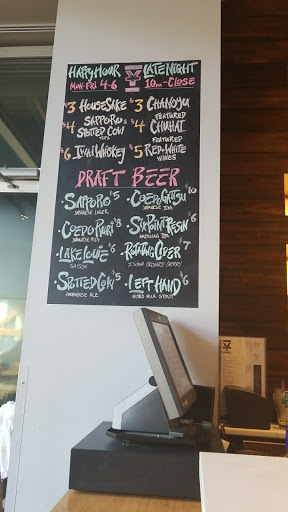 Happy Hour Late Night
Mon-Fri 4-6 10pm-Close
$3 House Sake $3 Chanoyu
Featured
$4 Sapporo & $4 Chuhai
Spotted Cow
Taps Featured
$6 Iwai Whiskey $5 Red & White
Wines
Draft Beer
Sapporo $5 Coedo Gatsu $10
Japanese Lager Japanese IPA
Coedo Ruri $8 Six Point Resin $6
Japanese Pils
Lake Louie $6 Rotating Cider $7
Saison Island Orchard Cherry
Spotted Cow $5 Left Hand $6
Farmhouse Ale Nitro Milk Stout